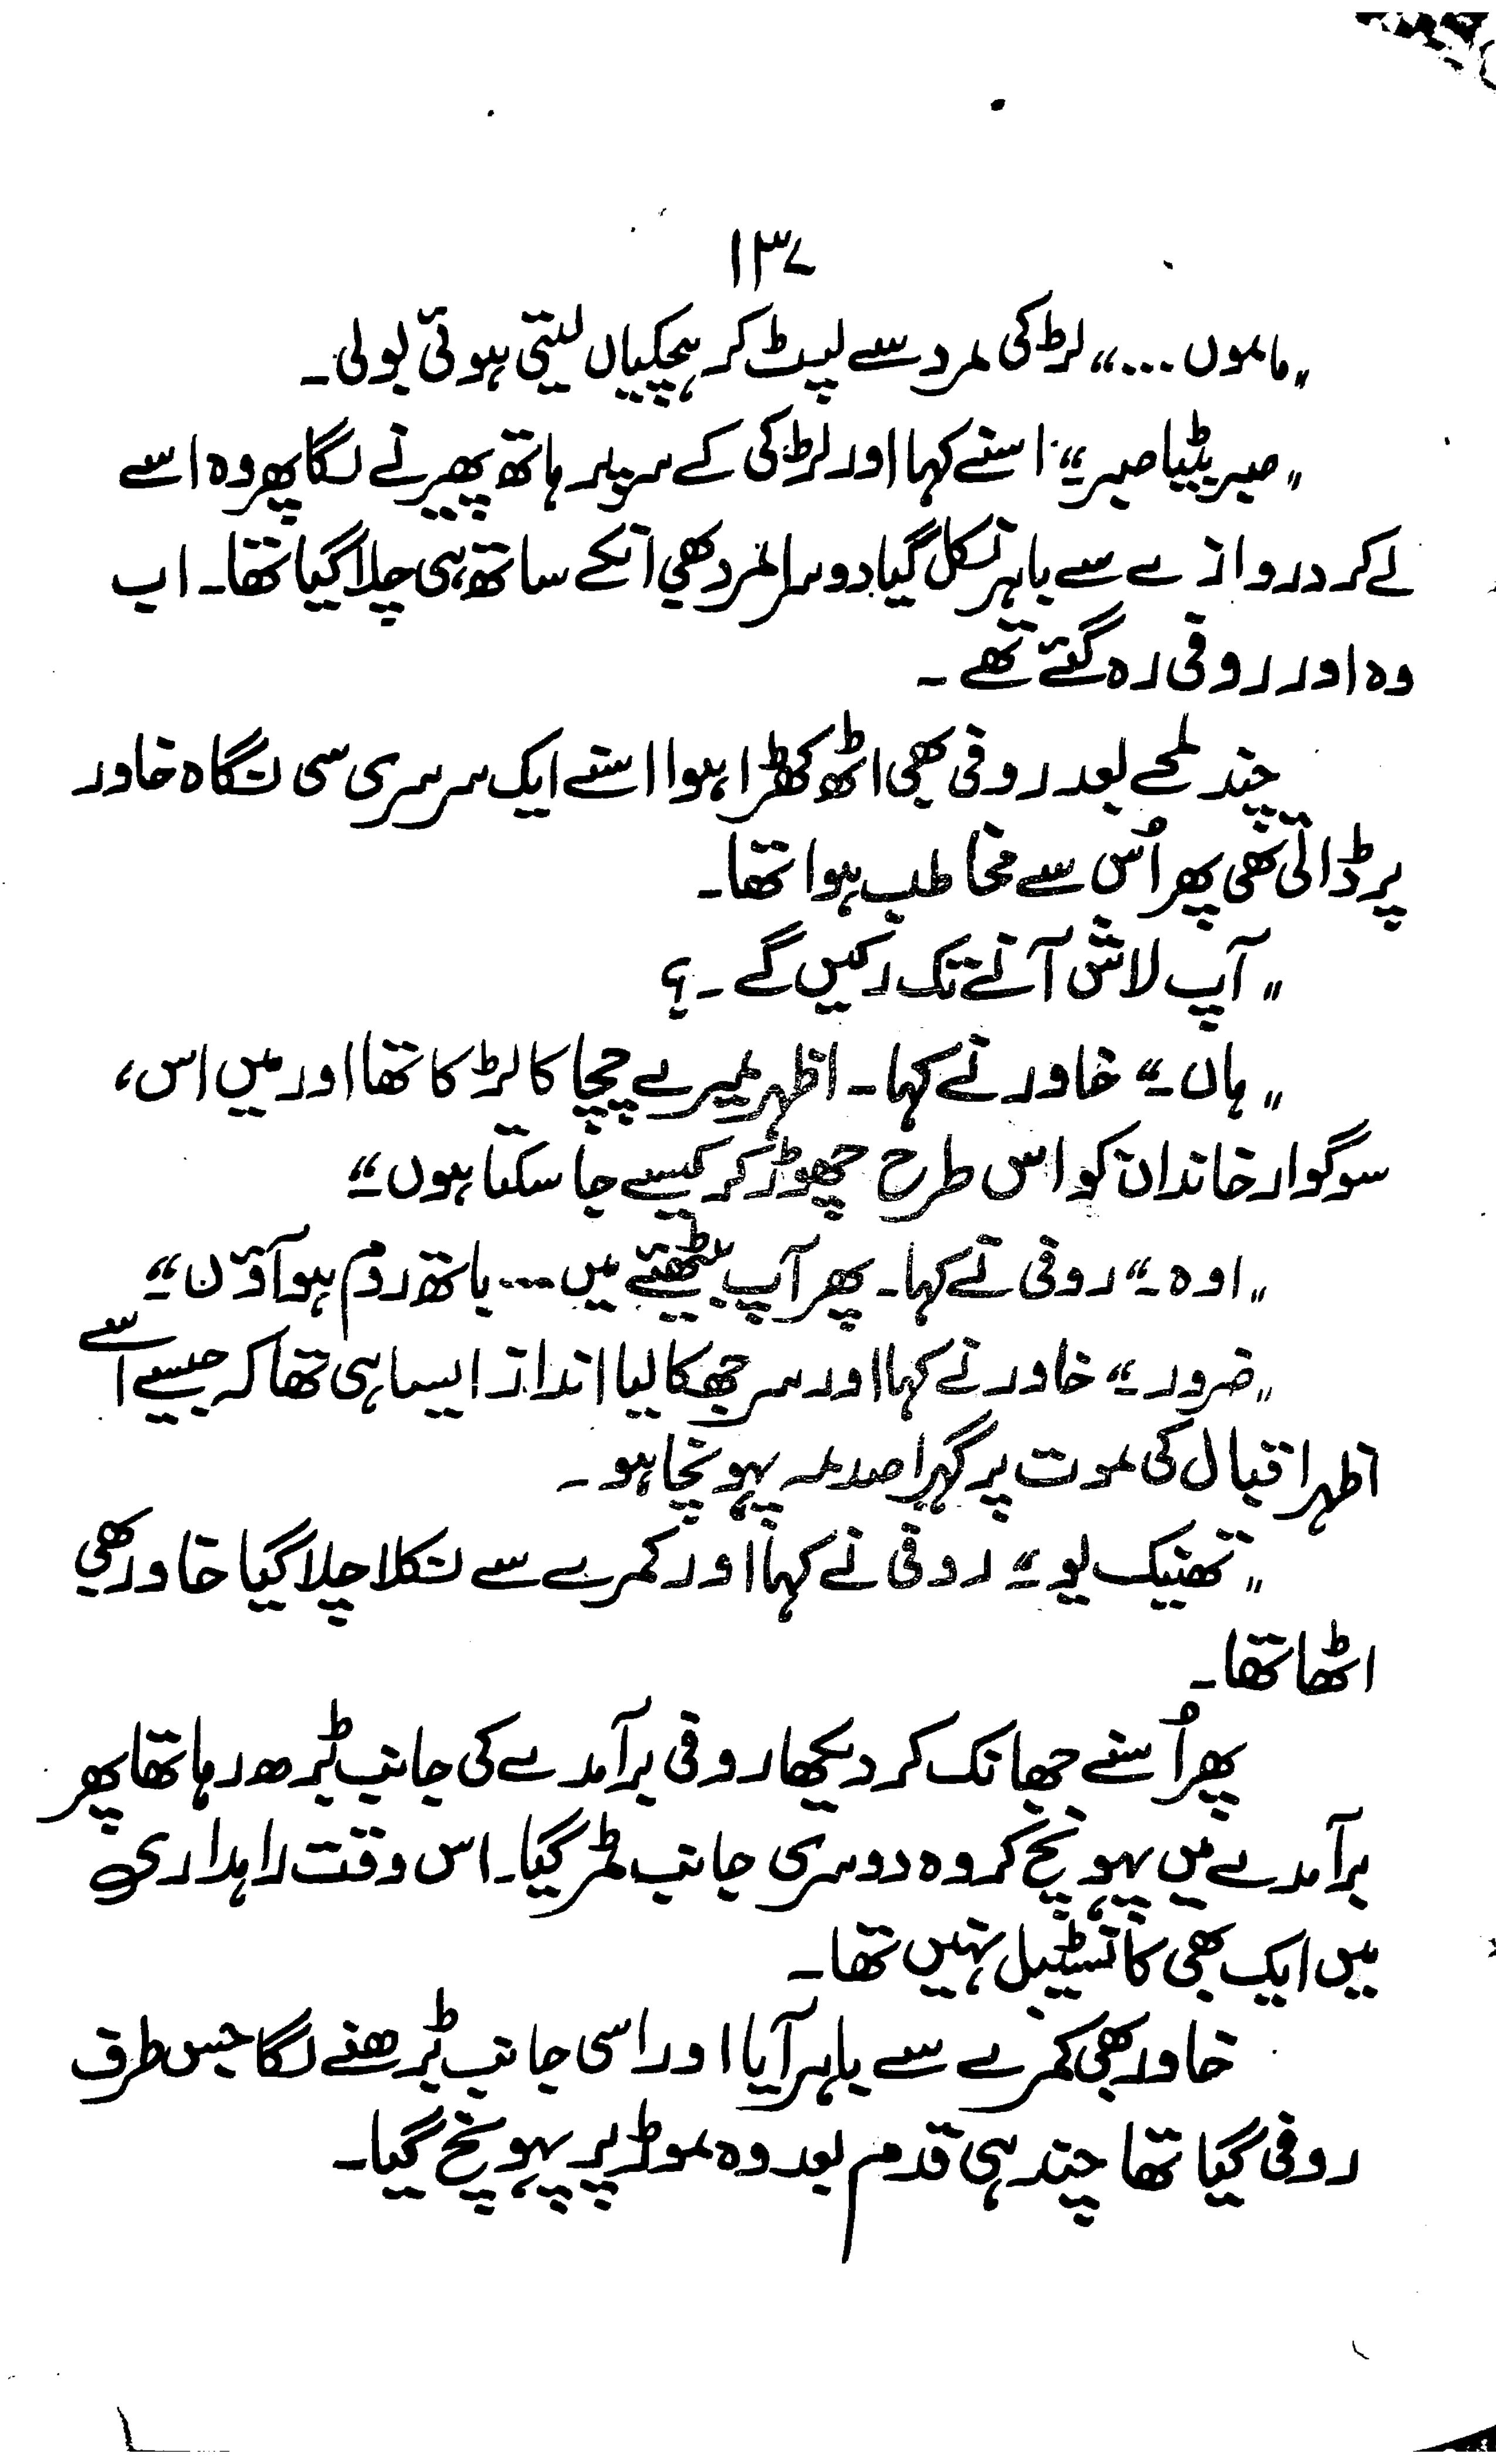 ۱۳۷
"ماموں ...." لڑکی مرد سے لپٹ کر ہچکیاں لیتی ہوئی بولی۔
"صبر بٹیا صبر۔" اسنے کہا اور لڑکی کے سر پر ہاتھ پھیرنے لگا پھر وہ اسے
لے کر دروازے سے باہر نکل گیا دوسرا مرد بھی انکے ساتھ ہی چلا گیا تھا۔ اب
وہ اور روفی رہ گئے تھے۔
چند لمحے بعد روفی بھی اٹھ کھڑا ہوا اسنے ایک سرسری سی نگاہ خاور
پر ڈالی تھی پھر اُس سے مخاطب ہوا تھا۔
"آپ لاش آنے تک رکیں گے۔؟
"ہاں۔" خاور نے کہا۔ اظہر میرے چچا کا لڑکا تھا اور میں اس،
سوگوار خاندان کو اس طرح چھوڑ کر کیسے جا سکتا ہوں۔"
"اوہ۔" روفی نے کہا۔ پھر آپ بیٹھئے میں ... باتھ روم ہو آؤں۔"
"ضرور۔" خاور نے کہا اور سر جھکا لیا انداز ایسا ہی تھا کہ جیسے اسے
اظہر اقبال کی موت پر گہرا صدمہ پہونچا ہو۔
"تھینک یو۔" روفی نے کہا اور کمرے سے نکلا چلا گیا خاور بھی
اٹھا تھا۔
پھر اُسنے جھانک کر دیکھا روفی برآمدے کی جانب بڑھ رہا تھا پھر
برآمدے میں پہونچ کر وہ دوسری جانب مڑ گیا۔ اس وقت راہداری
میں ایک بھی کانسٹیبل نہیں تھا۔
خاور بھی کمرے سے باہر آیا اور اسی جانب بڑھنے لگا جس طرف
روفی گیا تھا چند ہی قدم بعد وہ موڑ پر پہونچ گیا۔